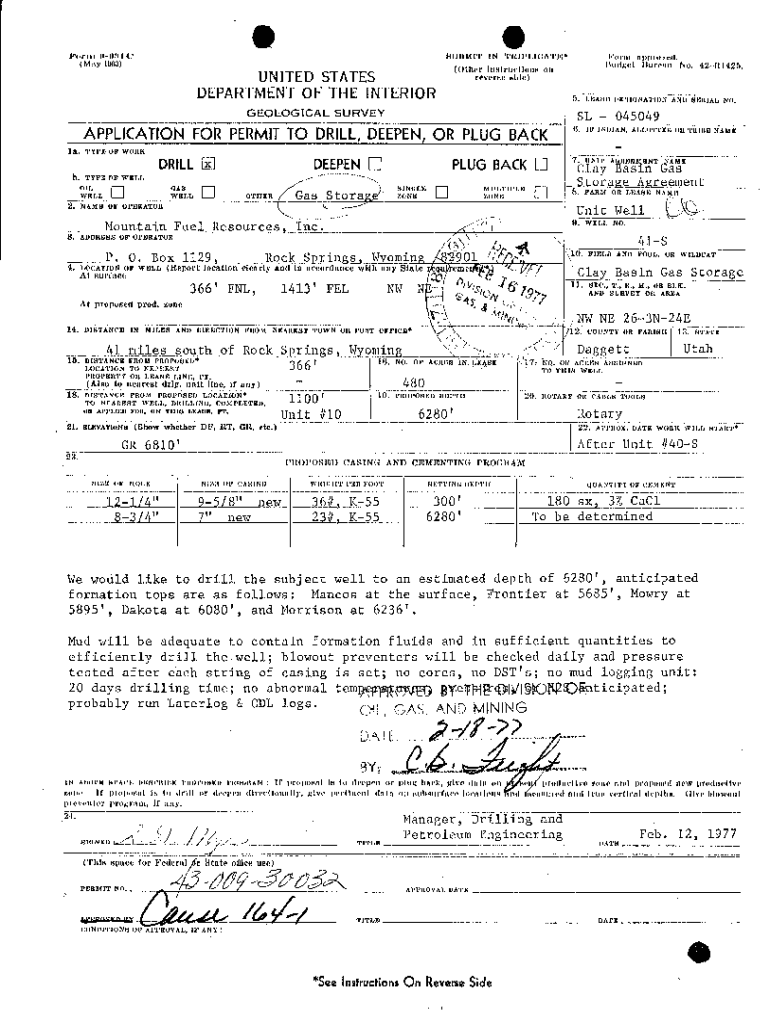 Form 9-331 C
(May 1963)
SUBMIT IN TRIPLICATE*
(Other instructions on
reverse side)
Form approved.
Budget Bureau No. 42-R1425.
UNITED STATES
DEPARTMENT OF THE INTERIOR
GEOLOGICAL SURVEY
5. LEASE DESIGNATION AND SERIAL NO.
SL - 045049
APPLICATION FOR PERMIT TO DRILL, DEEPEN, OR PLUG BACK
6. IF INDIAN, ALLOTTEE OR TRIBE NAME
-
1a. TYPE OF WORK
DRILL [x] DEEPEN [ ] PLUG BACK [ ]
7. UNIT AGREEMENT NAME
Clay Basin Gas
Storage Agreement
b. TYPE OF WELL
OIL WELL [ ] GAS WELL [ ] OTHER Gas Storage SINGLE ZONE [ ] MULTIPLE ZONE [ ]
8. FARM OR LEASE NAME
Unit Well
2. NAME OF OPERATOR
Mountain Fuel Resources, Inc.
9. WELL NO.
41-S
3. ADDRESS OF OPERATOR
P. O. Box 1129, Rock Springs, Wyoming 82901
10. FIELD AND POOL, OR WILDCAT
Clay Basin Gas Storage
4. LOCATION OF WELL (Report location clearly and in accordance with any State requirements.*)
At surface
366' FNL, 1413' FEL NW NE
At proposed prod. zone
RECEIVED
FEB 16 1977
DIVISION OF OIL
GAS, & MINING
11. SEC., T., R., M., OR BLK.
AND SURVEY OR AREA
NW NE 26-3N-24E
14. DISTANCE IN MILES AND DIRECTION FROM NEAREST TOWN OR POST OFFICE*
41 miles south of Rock Springs, Wyoming
12. COUNTY OR PARISH
Daggett
13. STATE
Utah
15. DISTANCE FROM PROPOSED*
LOCATION TO NEAREST
PROPERTY OR LEASE LINE, FT.
(Also to nearest drlg. unit line, if any)
366'
-
16. NO. OF ACRES IN LEASE
480
17. NO. OF ACRES ASSIGNED
TO THIS WELL
-
18. DISTANCE FROM PROPOSED LOCATION*
TO NEAREST WELL, DRILLING, COMPLETED,
OR APPLIED FOR, ON THIS LEASE, FT.
1100'
Unit #10
19. PROPOSED DEPTH
6280'
20. ROTARY OR CABLE TOOLS
Rotary
21. ELEVATIONS (Show whether DF, RT, GR, etc.)
GR 6810'
22. APPROX. DATE WORK WILL START*
After Unit #40-S
23.
PROPOSED CASING AND CEMENTING PROGRAM
SIZE OF HOLE SIZE OF CASING WEIGHT PER FOOT SETTING DEPTH QUANTITY OF CEMENT
12-1/4" 9-5/8" new 36#, K-55 300' 180 sx, 3% CaCl
8-3/4" 7" new 23#, K-55 6280' To be determined
We would like to drill the subject well to an estimated depth of 6280', anticipated
formation tops are as follows: Mancos at the surface, Frontier at 5685', Mowry at
5895', Dakota at 6080', and Morrison at 6236'.
Mud will be adequate to contain formation fluids and in sufficient quantities to
efficiently drill the well; blowout preventers will be checked daily and pressure
tested after each string of casing is set; no cores, no DST's; no mud logging unit:
20 days drilling time; no abnormal anticipated;
probably run Laterlog & CDL logs.
APPROVED BY THE DIVISION OF
OIL, GAS, AND MINING
DATE: 2-18-77
BY: C.B. Feight
IN ABOVE SPACE DESCRIBE PROPOSED PROGRAM: If proposal is to deepen or plug back, give data on present productive zone and proposed new productive
zone. If proposal is to drill or deepen directionally, give pertinent data on subsurface locations and measured and true vertical depths. Give blowout
preventer program, if any.
24.
SIGNED
TITLE Manager, Drilling and
Petroleum Engineering
DATE Feb. 12, 1977
(This space for Federal or State office use)
PERMIT NO. 43-009-30032
APPROVAL DATE
APPROVED BY Cause 164-1
TITLE
DATE
CONDITIONS OF APPROVAL, IF ANY:
*See Instructions On Reverse Side